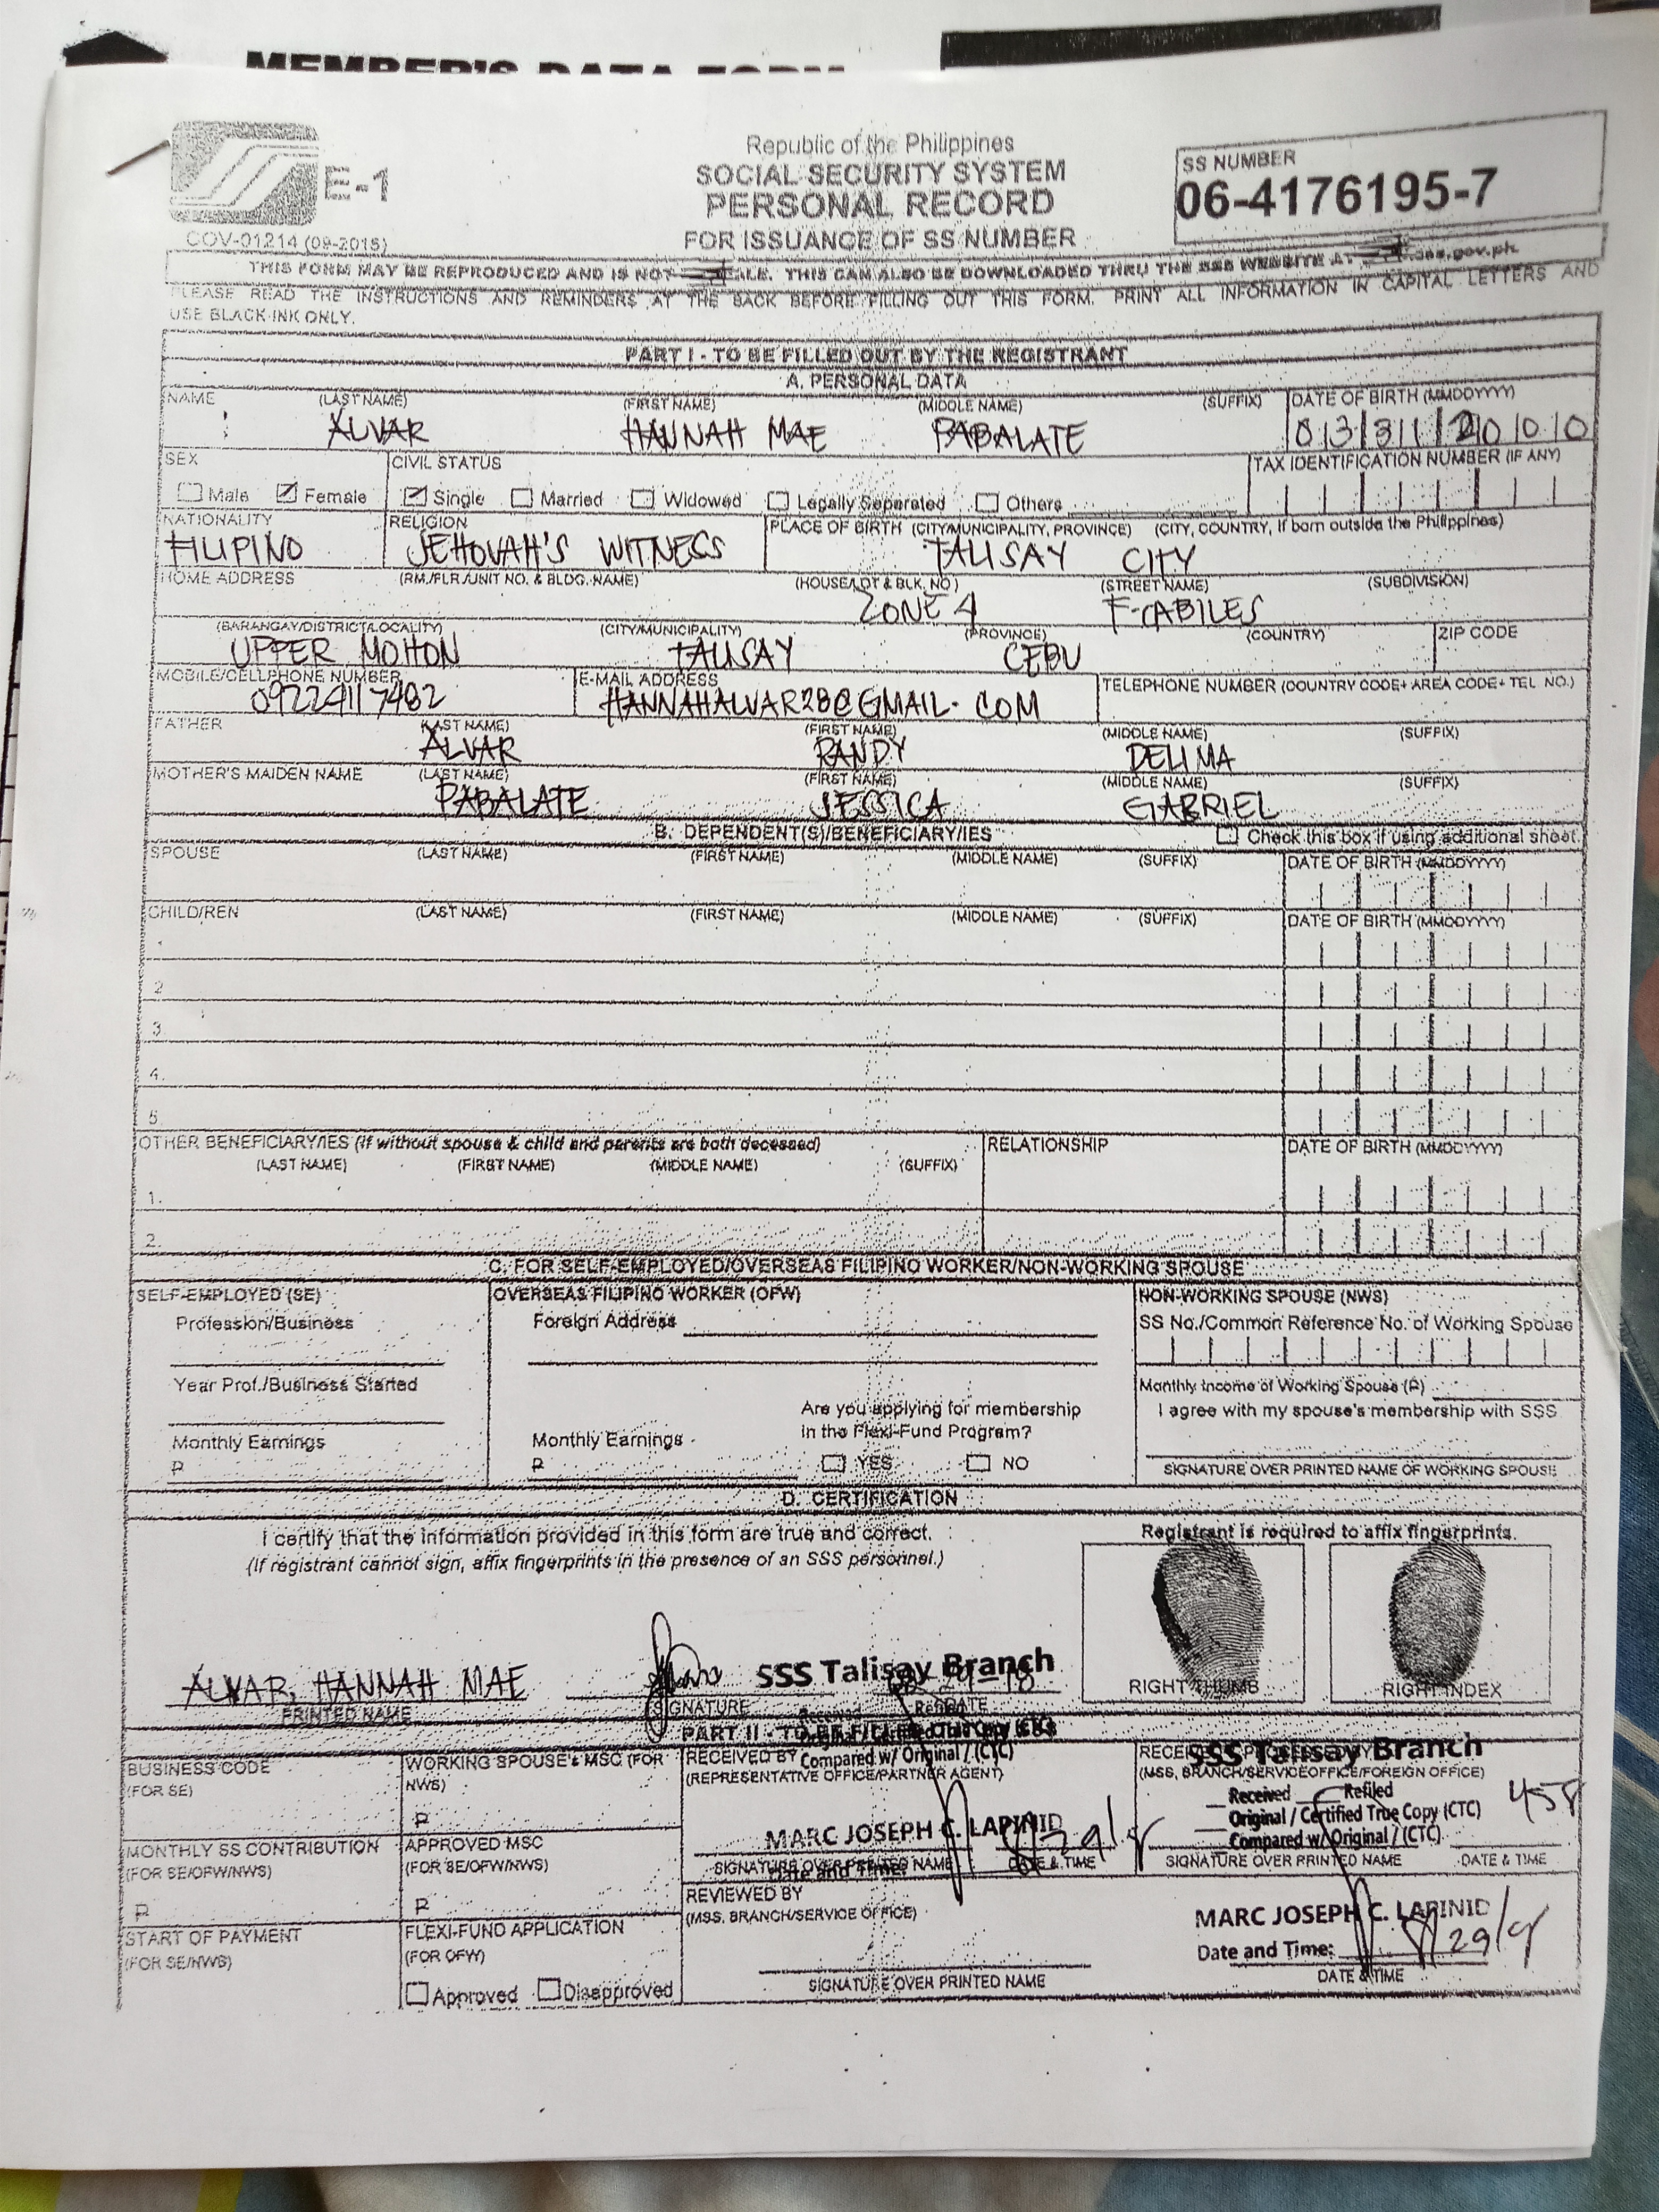 MEMBER'S DATA FORM
E-1
COV-01214 (09-2015)
Republic of the Philippines
SOCIAL SECURITY SYSTEM
PERSONAL RECORD
FOR ISSUANCE OF SS NUMBER
SS NUMBER
06-4176195-7
THIS FORM MAY BE REPRODUCED AND IS NOT SALE. THIS CAN ALSO BE DOWNLOADED THRU THE SSS WEBSITE AT .sss.gov.ph
PLEASE READ THE INSTRUCTIONS AND REMINDERS AT THE BACK BEFORE FILLING OUT THIS FORM. PRINT ALL INFORMATION IN CAPITAL LETTERS AND
USE BLACK INK ONLY.
PART I - TO BE FILLED OUT BY THE REGISTRANT
A. PERSONAL DATA
NAME (LAST NAME) (FIRST NAME) (MIDDLE NAME) (SUFFIX) DATE OF BIRTH (MMDDYYYY)
ALVAR HANNAH MAE PABALATE 03312000
SEX CIVIL STATUS TAX IDENTIFICATION NUMBER (IF ANY)
Male Female Single Married Widowed Legally Separated Others
NATIONALITY RELIGION PLACE OF BIRTH (CITY/MUNICIPALITY, PROVINCE) (CITY, COUNTRY, if born outside the Philippines)
FILIPINO JEHOVAH'S WITNESS TALISAY CITY
HOME ADDRESS (RM./FLR./UNIT NO. & BLDG. NAME) (HOUSE/LOT & BLK. NO.) (STREET NAME) (SUBDIVISION)
ZONE 4 F-CABILES
(BARANGAY/DISTRICT/LOCALITY) (CITY/MUNICIPALITY) (PROVINCE) (COUNTRY) ZIP CODE
UPPER MOHON TALISAY CEBU
MOBILE/CELLPHONE NUMBER E-MAIL ADDRESS TELEPHONE NUMBER (COUNTRY CODE+ AREA CODE+ TEL NO.)
09224117482 HANNAHALVAR28@GMAIL.COM
FATHER (LAST NAME) (FIRST NAME) (MIDDLE NAME) (SUFFIX)
ALVAR RANDY DELIMA
MOTHER'S MAIDEN NAME (LAST NAME) (FIRST NAME) (MIDDLE NAME) (SUFFIX)
PABALATE JESSICA GABRIEL
B. DEPENDENT(S)/BENEFICIARY/IES Check this box if using additional sheet.
SPOUSE (LAST NAME) (FIRST NAME) (MIDDLE NAME) (SUFFIX) DATE OF BIRTH (MMDDYYYY)
CHILD/REN (LAST NAME) (FIRST NAME) (MIDDLE NAME) (SUFFIX) DATE OF BIRTH (MMDDYYYY)
1.
2.
3.
4.
5.
OTHER BENEFICIARY/IES (If without spouse & child and parents are both deceased) RELATIONSHIP DATE OF BIRTH (MMDDYYYY)
(LAST NAME) (FIRST NAME) (MIDDLE NAME) (SUFFIX)
1.
2.
C. FOR SELF-EMPLOYED/OVERSEAS FILIPINO WORKER/NON-WORKING SPOUSE
SELF-EMPLOYED (SE) OVERSEAS FILIPINO WORKER (OFW) NON-WORKING SPOUSE (NWS)
Profession/Business Foreign Address SS No./Common Reference No. of Working Spouse
Year Prof./Business Started Monthly Income of Working Spouse (₱)
Are you applying for membership I agree with my spouse's membership with SSS
in the Flexi-Fund Program?
Monthly Earnings Monthly Earnings
₱ ₱ YES NO SIGNATURE OVER PRINTED NAME OF WORKING SPOUSE
D. CERTIFICATION
I certify that the information provided in this form are true and correct. Registrant is required to affix fingerprints.
(If registrant cannot sign, affix fingerprints in the presence of an SSS personnel.)
ALVAR, HANNAH MAE SSS Talisay Branch
PRINTED NAME SIGNATURE DATE RIGHT THUMB RIGHT INDEX
PART II - TO BE FILLED
BUSINESS CODE WORKING SPOUSE'S MSC (FOR RECEIVED BY Compared w/ Original / (CTC) SSS Talisay Branch
(FOR SE) NWS) (REPRESENTATIVE OFFICE/PARTNER AGENT) (MSS, BRANCH/SERVICE OFFICE/FOREIGN OFFICE)
₱ Received Refiled
Original / Certified True Copy (CTC)
MARC JOSEPH C. LAPINID Compared w/ Original / (CTC)
MONTHLY SS CONTRIBUTION APPROVED MSC SIGNATURE OVER PRINTED NAME DATE & TIME SIGNATURE OVER PRINTED NAME DATE & TIME
(FOR SE/OFW/NWS) (FOR SE/OFW/NWS)
₱ ₱ REVIEWED BY
(MSS, BRANCH/SERVICE OFFICE) MARC JOSEPH C. LAPINID
START OF PAYMENT FLEXI-FUND APPLICATION Date and Time: 8/29/18
(FOR SE/NWS) (FOR OFW) SIGNATURE OVER PRINTED NAME DATE & TIME
Approved Disapproved